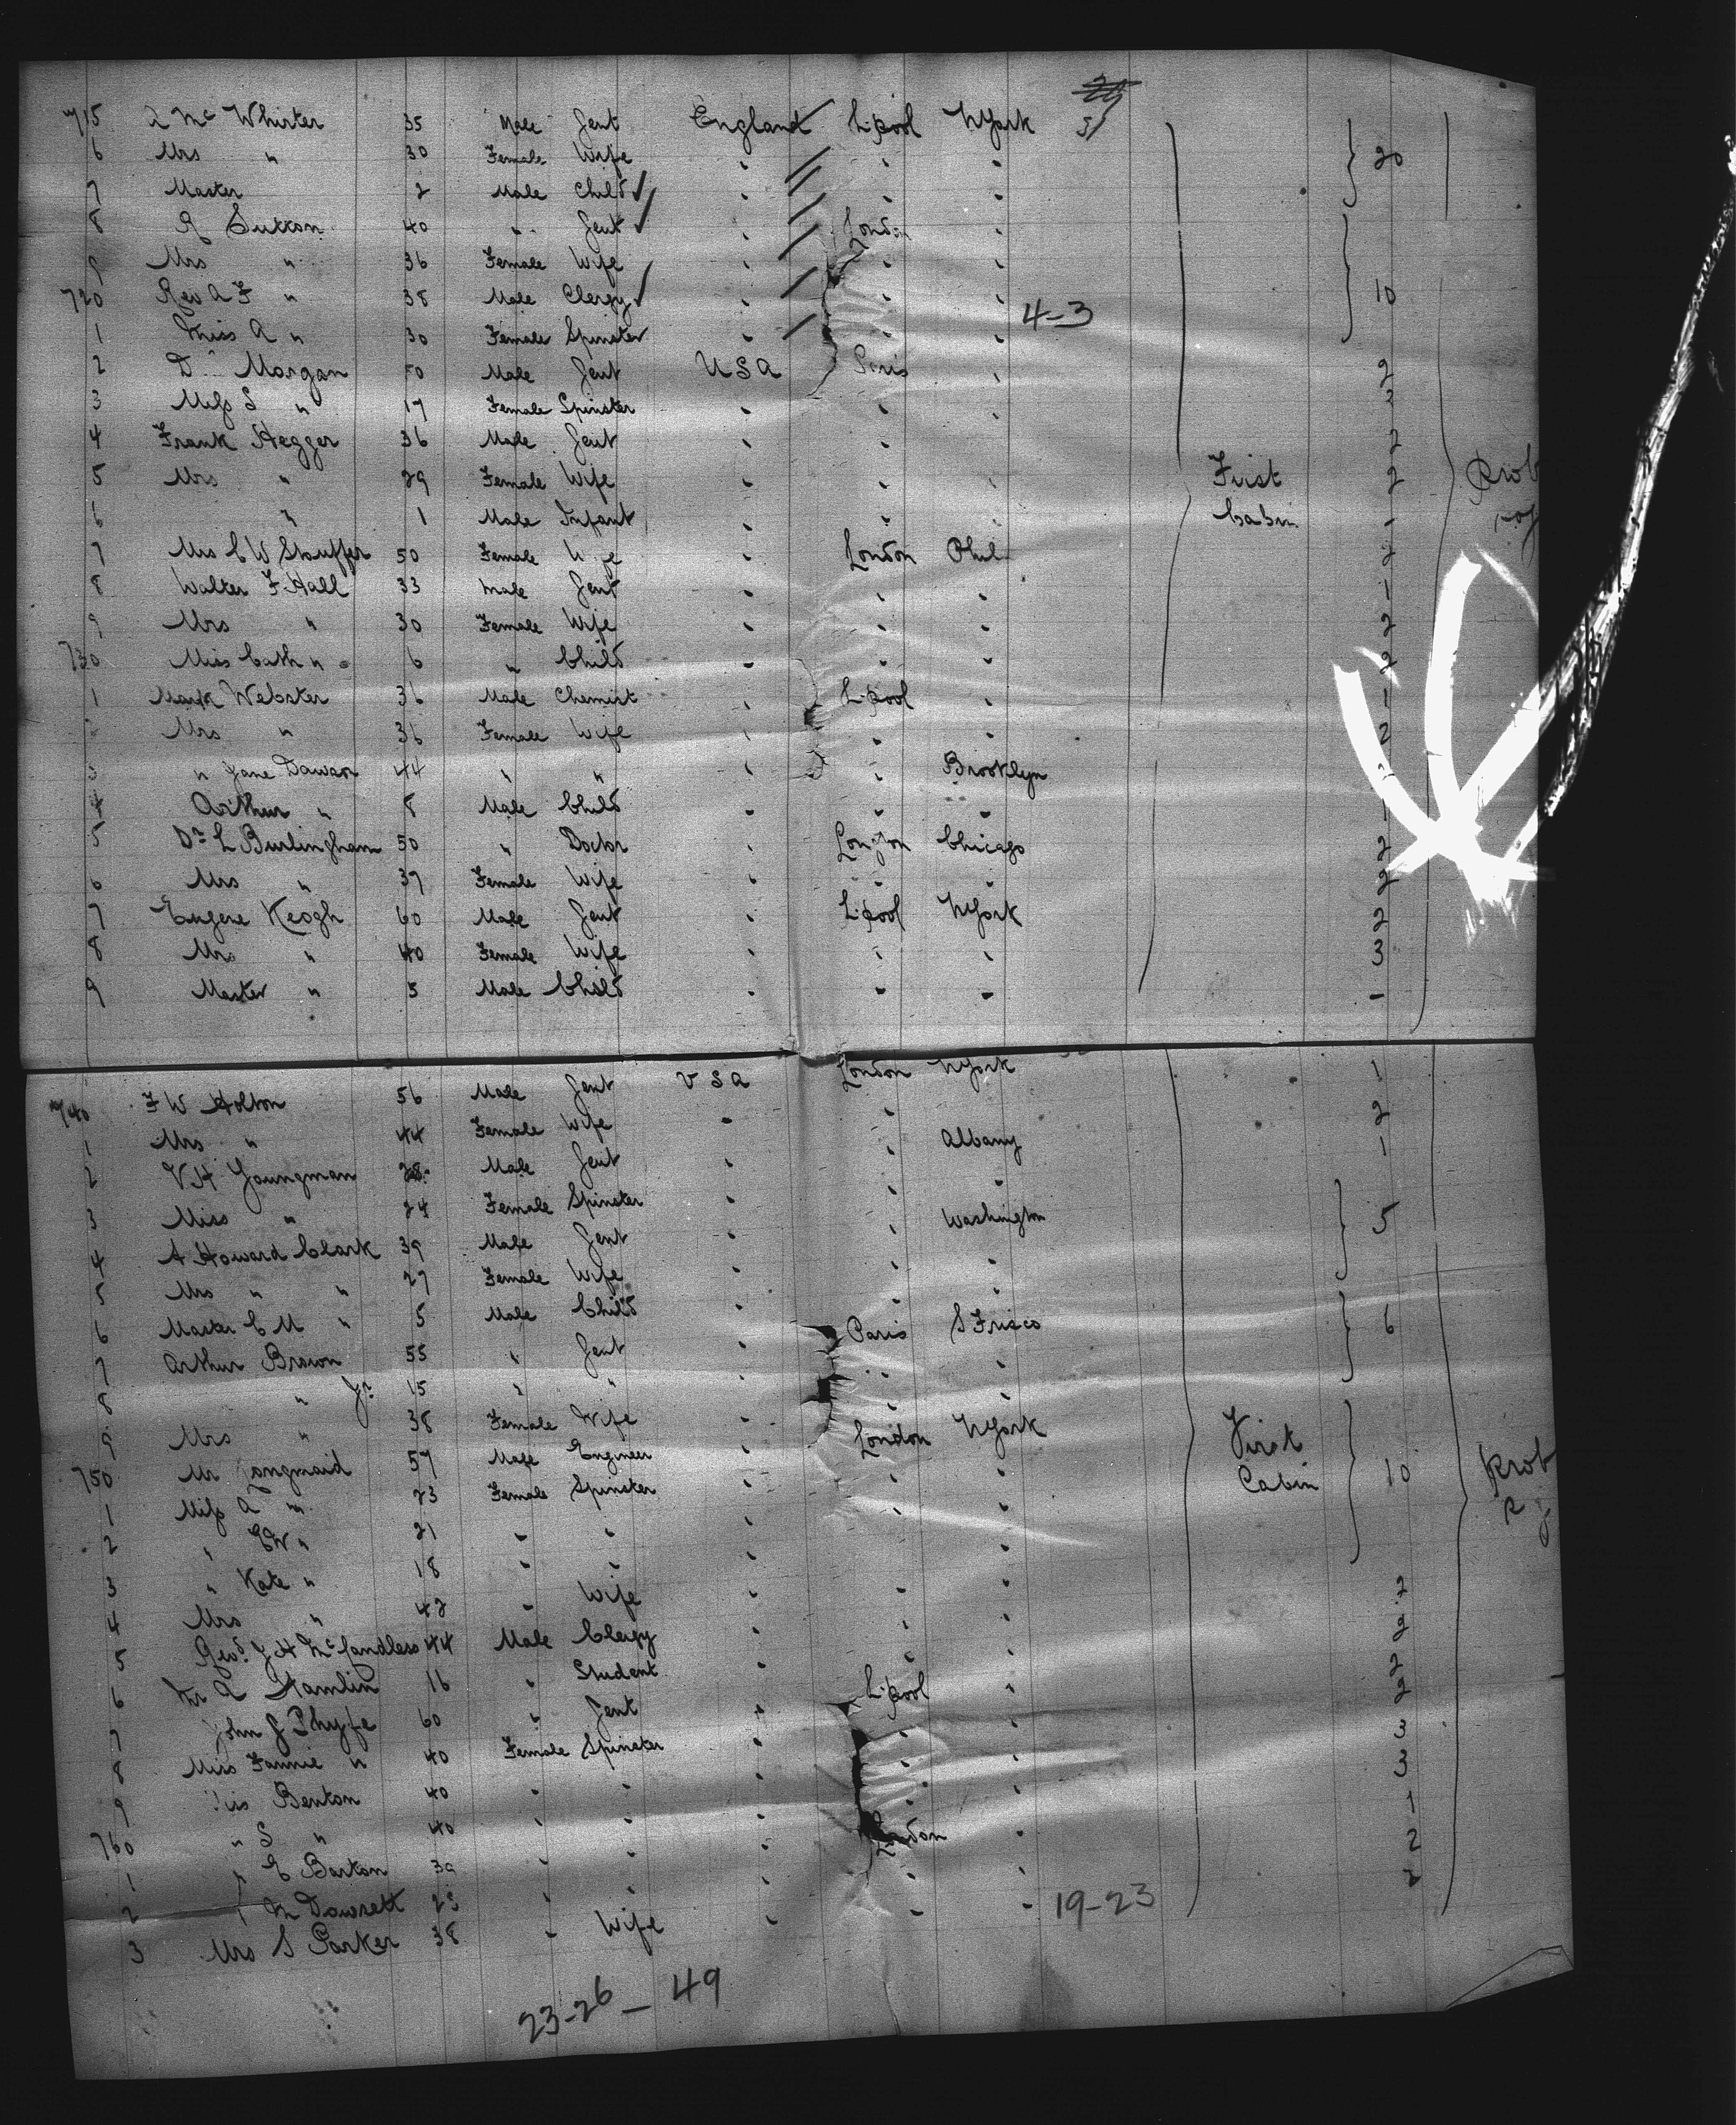 29
715 Q Mc Whirter 35 Male Gent England L.pool NYork 31
6 Mrs " 30 Female Wife " " " 20
7 Master 2 Male Child " " "
8 R Sutton 40 " Gent " London "
9 Mrs " 36 Female Wife " " "
720 Rev A F " 38 Male Clergy " " " 10
4-3
1 Miss A " 30 Female Spinster " " "
2 Dr Morgan 50 Male Gent USA Paris " 2
3 Miss S " 17 Female Spinster " " " 3
4 Frank Hegger 36 Male Gent " " 2
5 Mrs " 29 Female Wife " " " First 2 Prot
6 " 1 Male Infant " " " Cabin 1
7 Mrs C W Stouffer 50 Female Wife " London Phil 2
8 Walter F Hall 33 Male Gent " " " 1
9 Mrs " 30 Female Wife " " " 2
730 Miss Cath " 6 " Child " " " 2
1 Mark Webster 36 Male Chemist " L.pool " 1
Mrs " 36 Female Wife " " " 2
3 " Jane Dawson 44 " " " Brooklyn
4 Arthur " 8 Male Child " " "
5 Dr L Burlingham 50 " Doctor " London Chicago 2
6 Mrs " 37 Female Wife " " " 2
7 Eugene Keogh 60 Male Gent " L.pool NYork 2
8 Mrs " 40 Female Wife " " " 3
9 Master " 5 Male Child " " " 1
740 F W Holton 56 Male Gent USA London NYork 1
1 Mrs " 44 Female Wife " " 2
2 V H Youngman 28 Male Gent " " Albany 1
3 Miss " 24 Female Spinster " " "
4 A Howard Clark 39 Male Gent " " Washington 5
5 Mrs " " 27 Female Wife " " "
6 Master C M " 5 Male Child " " "
7 Arthur Brown 55 " Gent " Paris S Frisco 6
8 " Jr 15 " " " " "
9 Mrs " 38 Female Wife " " "
750 Mr Langmaid 57 Male Engineer " London NYork First Cabin 10 Prot
1 Miss A " 23 Female Spinster " " "
2 " EW " 21 " " " " "
3 " Kate " 18 " " " "
4 Mrs " 42 " Wife " " " 2
5 Revd J H McCandless 44 Male Clergy " " " 2
6 Mr Q Hamlin 16 " Student " " " 2
7 John J Phyfe 60 " Gent " L.pool " 2
8 Miss Fannie " 40 Female Spinster " " " 3
9 Miss Benton 40 " " " " " 3
760 " S " 40 " " " " 1
1 " E Barton 39 " " " London " 2
2 " M Dowsett 23 " " " " "
3 Mrs S Parker 38 " Wife " " " 19-23
23-26 - 49